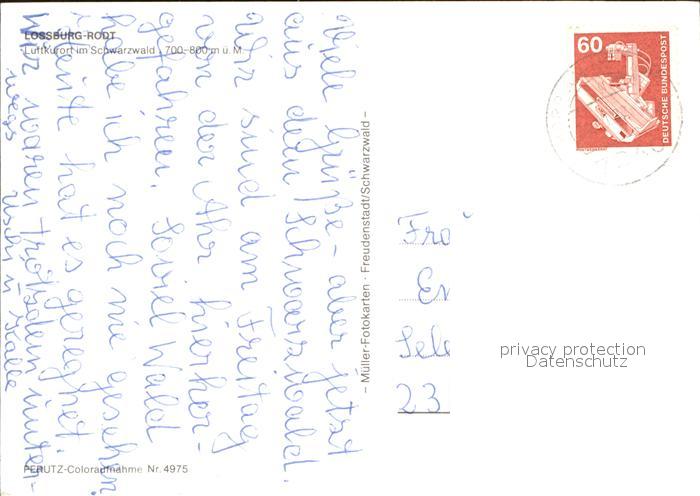 LOSSBURG-RODT
Luftkurort im Schwarzwald · 700-800 m ü. M.
Viele Grüße - aber jetzt
aus dem Schwarzwald.
Wir sind am Freitag
von der Ahr hierher-
gefahren. Soviel Wald
habe ich noch nie gesehn.
Heute hat es geregnet.
Wir waren trotzdem unter-
wegs
Uschi u. Kalle
PERUTZ-Coloraufnahme Nr. 4975
– Müller-Fotokarten · Freudenstadt/Schwarzwald –
60
DEUTSCHE BUNDESPOST
23
privacy protection
Datenschutz